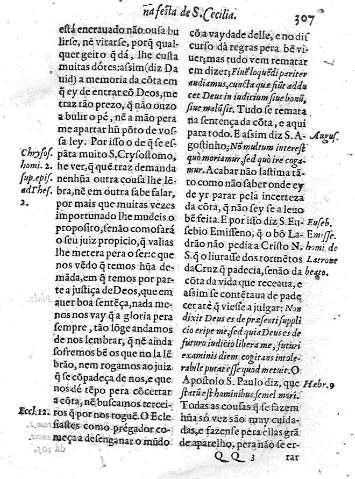 na festa de S. Cecilia.
307
está encrauado não ousa bu
lirse, nẽ virarse, porq̃ qual-
quer geito q̃ dá, lhe custa
muitas dores: assim (diz Da
uid) a memoria da cõta em
q̃ ey de entrar cõ Deos, me
traz tão prezo, q̃ não ouzo
a bulir o pé, nẽ a mão pera
me apartar hũ põto de vos-
sa ley. Por isso o de q̃ se es-
Chrysos.
pãta muito S. Crysostomo,
homi. 2.
he ver, q̃ que traz demanda
sup. epis.
nenhũa outra cousa lhe lẽ-
ad thes.
bra, nẽ em outra sabe falar,
2.
por mais que muitas vezes
importunado lhe mudeis o
proposito, senão como sará
o seu juiz propicio, q̃ valias
lhe metera pera o ser: e que
nos vẽdo q̃ temos hũa de-
mãda, em q̃ temos por par-
te a justiça de Deos, que em
auer boa sentẽça, nada me-
nos nos vay q̃ a gloria pera
sempre, tão lõge andamos
de nos lembrar, q̃ nẽ ainda
sofremos bẽ os que no la lẽ-
brão, nem rogamos ao juiz
q̃ se cõpadeça de nos, e que
nos dé tẽpo pera cõcertar
a cõta, nẽ buscamos tercei-
Eccl. 12.
ros q̃ por nos roguẽ. O Ecle
siastes como prégador co-
meça a desenganar o mũdo
cõ a vaydade delle, e no dis
curso dá regras pera bẽ vi-
uer; mas tudo vem rematar
em dizer; Finẽ loquẽdi pariter
audiamus, cuncta quæ fiũt addu
cet Deus in iudicium siue bonũ,
siue malũ sit. Tudo se remata
na sentença da cõta, e aqui
pára todo. E assim diz S. A-
August.
gostinho; Nõ multum interest
quò moriamur, sed quò ire coga-
mur. Acabar não lastima tã-
to como não saber onde ey
de yr parar pela incerteza
da cõta, q̃ não sey se a leuo
bẽ feita. E por isso diz S. Eu
Euseb.
sebio Emisseno, q̃ o bõ La-
Emiss.
drão não pedia a Cristo N.
homi. de
S. q̃ o liurasse dos tormẽtos
Latrone
da Cruz q̃ padecia, senão da
beato.
cõta da vida que receaua, e
assim se contẽtaua de pade
cer até q̃ viesse a julgar: Non
dixit Deus es de præsenti suppli
cio eripe me, sed quia Deus es de
futuro iudicio libera me, futuri
examinis diem cogitans intole-
rabile putat esse quod metuit. O
Apostolo S. Paulo diz, que
Hebr. 9
statutũ est hominibus semel mori.
Todas as cousas q̃ se fazem
hũa só vez são muy cuida-
das, e fazense pera ellas grã
de aparelho, pera não se er-
Q Q 3
rar